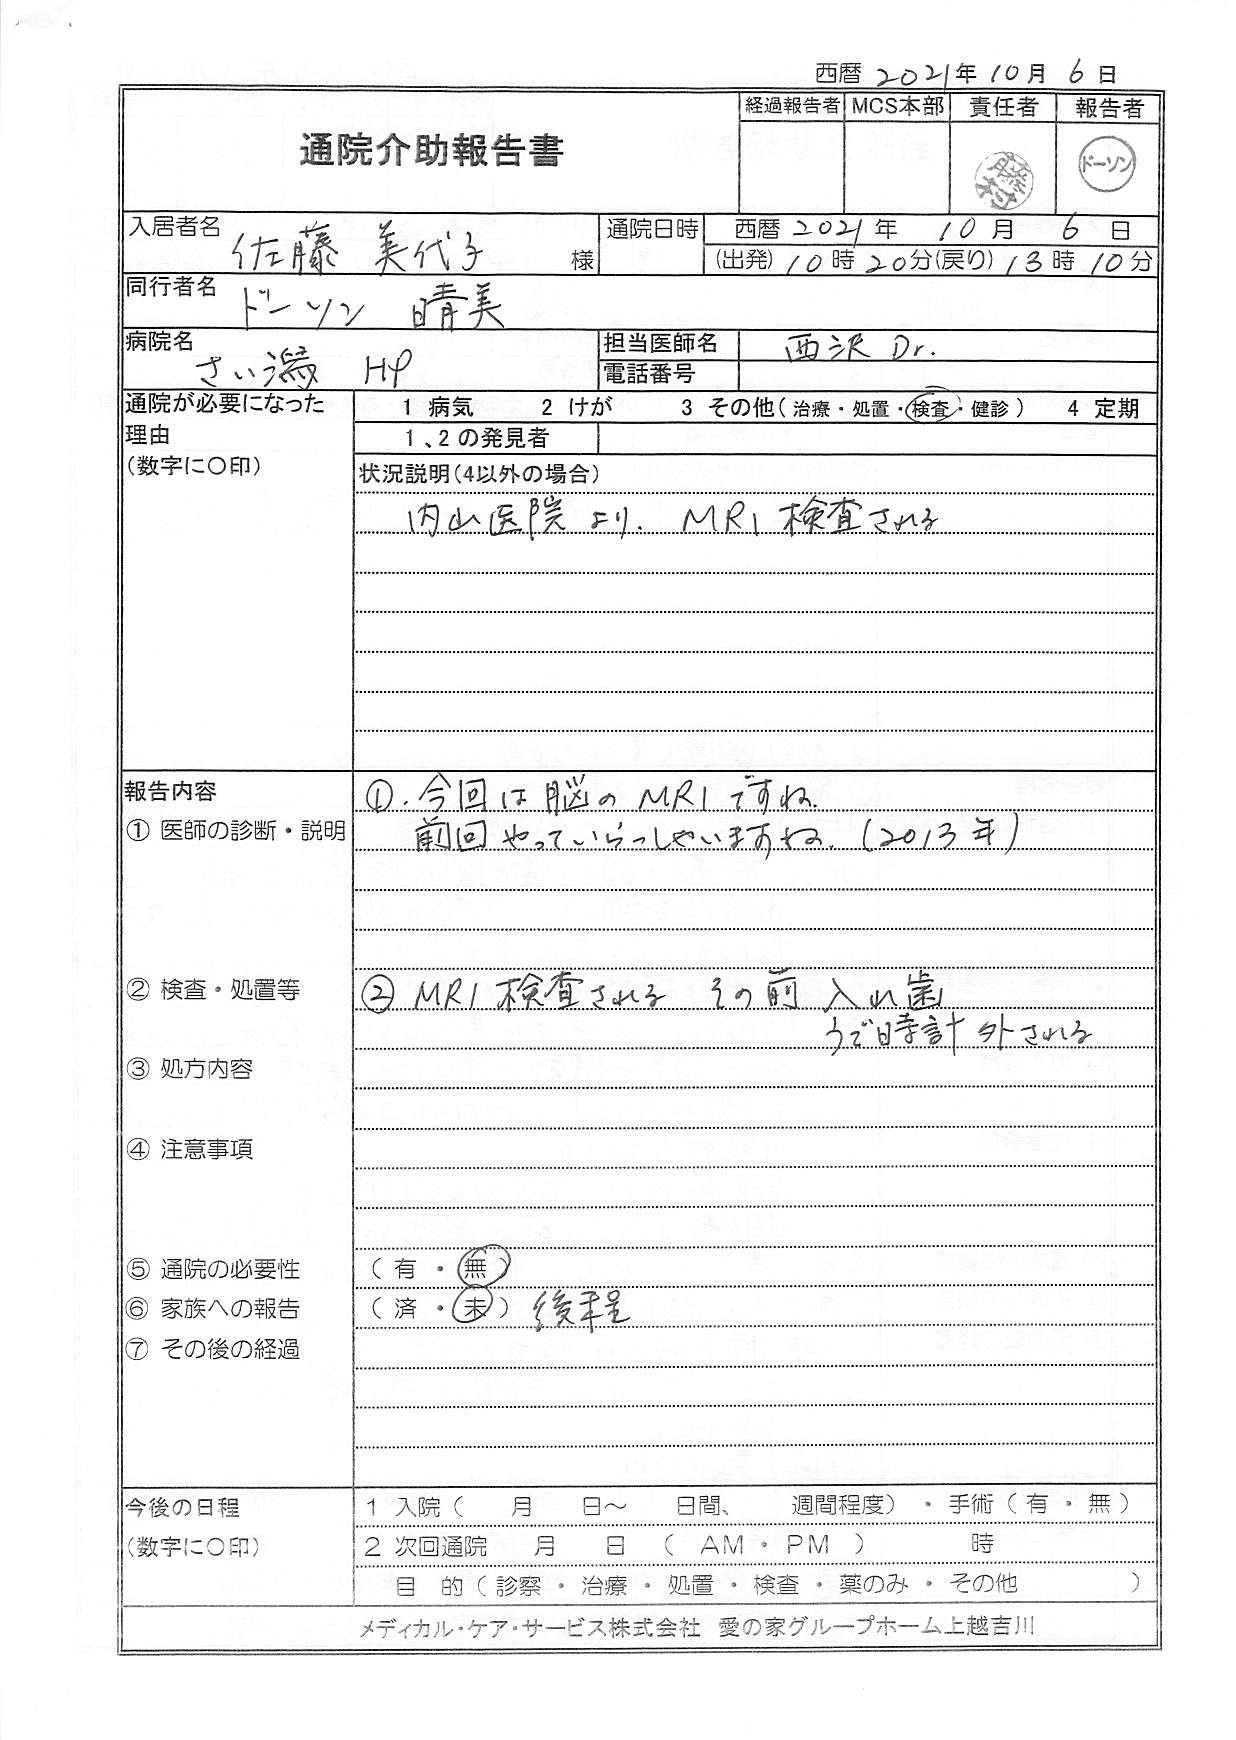 西暦 2021年 10月 6日
経過報告者 MCS本部 責任者 報告者
通院介助報告書
ドーソン
入居者名 佐藤 美代子 様
通院日時 西暦 2021年 10月 6日
(出発) 10時20分(戻り) 13時10分
同行者名 ドーソン 晴美
病院名 さい潟 HP
担当医師名 西沢 Dr.
電話番号
通院が必要になった 1 病気 2 けが 3 その他(治療・処置・検査・健診) 4 定期
理由 1、2の発見者
(数字に〇印) 状況説明(4以外の場合)
内山医院より. MRI 検査される
報告内容 ①. 今回は脳のMRIですね.
① 医師の診断・説明 前回やっていらっしゃいますね. (2013年)
② 検査・処置等 ② MRI検査される その前 入れ歯
うで時計外される
③ 処方内容
④ 注意事項
⑤ 通院の必要性 (有・無)
⑥ 家族への報告 (済・未) 後程
⑦ その後の経過
今後の日程 1 入院( 月 日〜 日間、 週間程度)・手術(有・無)
(数字に〇印) 2 次回通院 月 日 ( AM・PM ) 時
目 的(診察・治療・処置・検査・薬のみ・その他 )
メディカル・ケア・サービス株式会社 愛の家グループホーム上越吉川